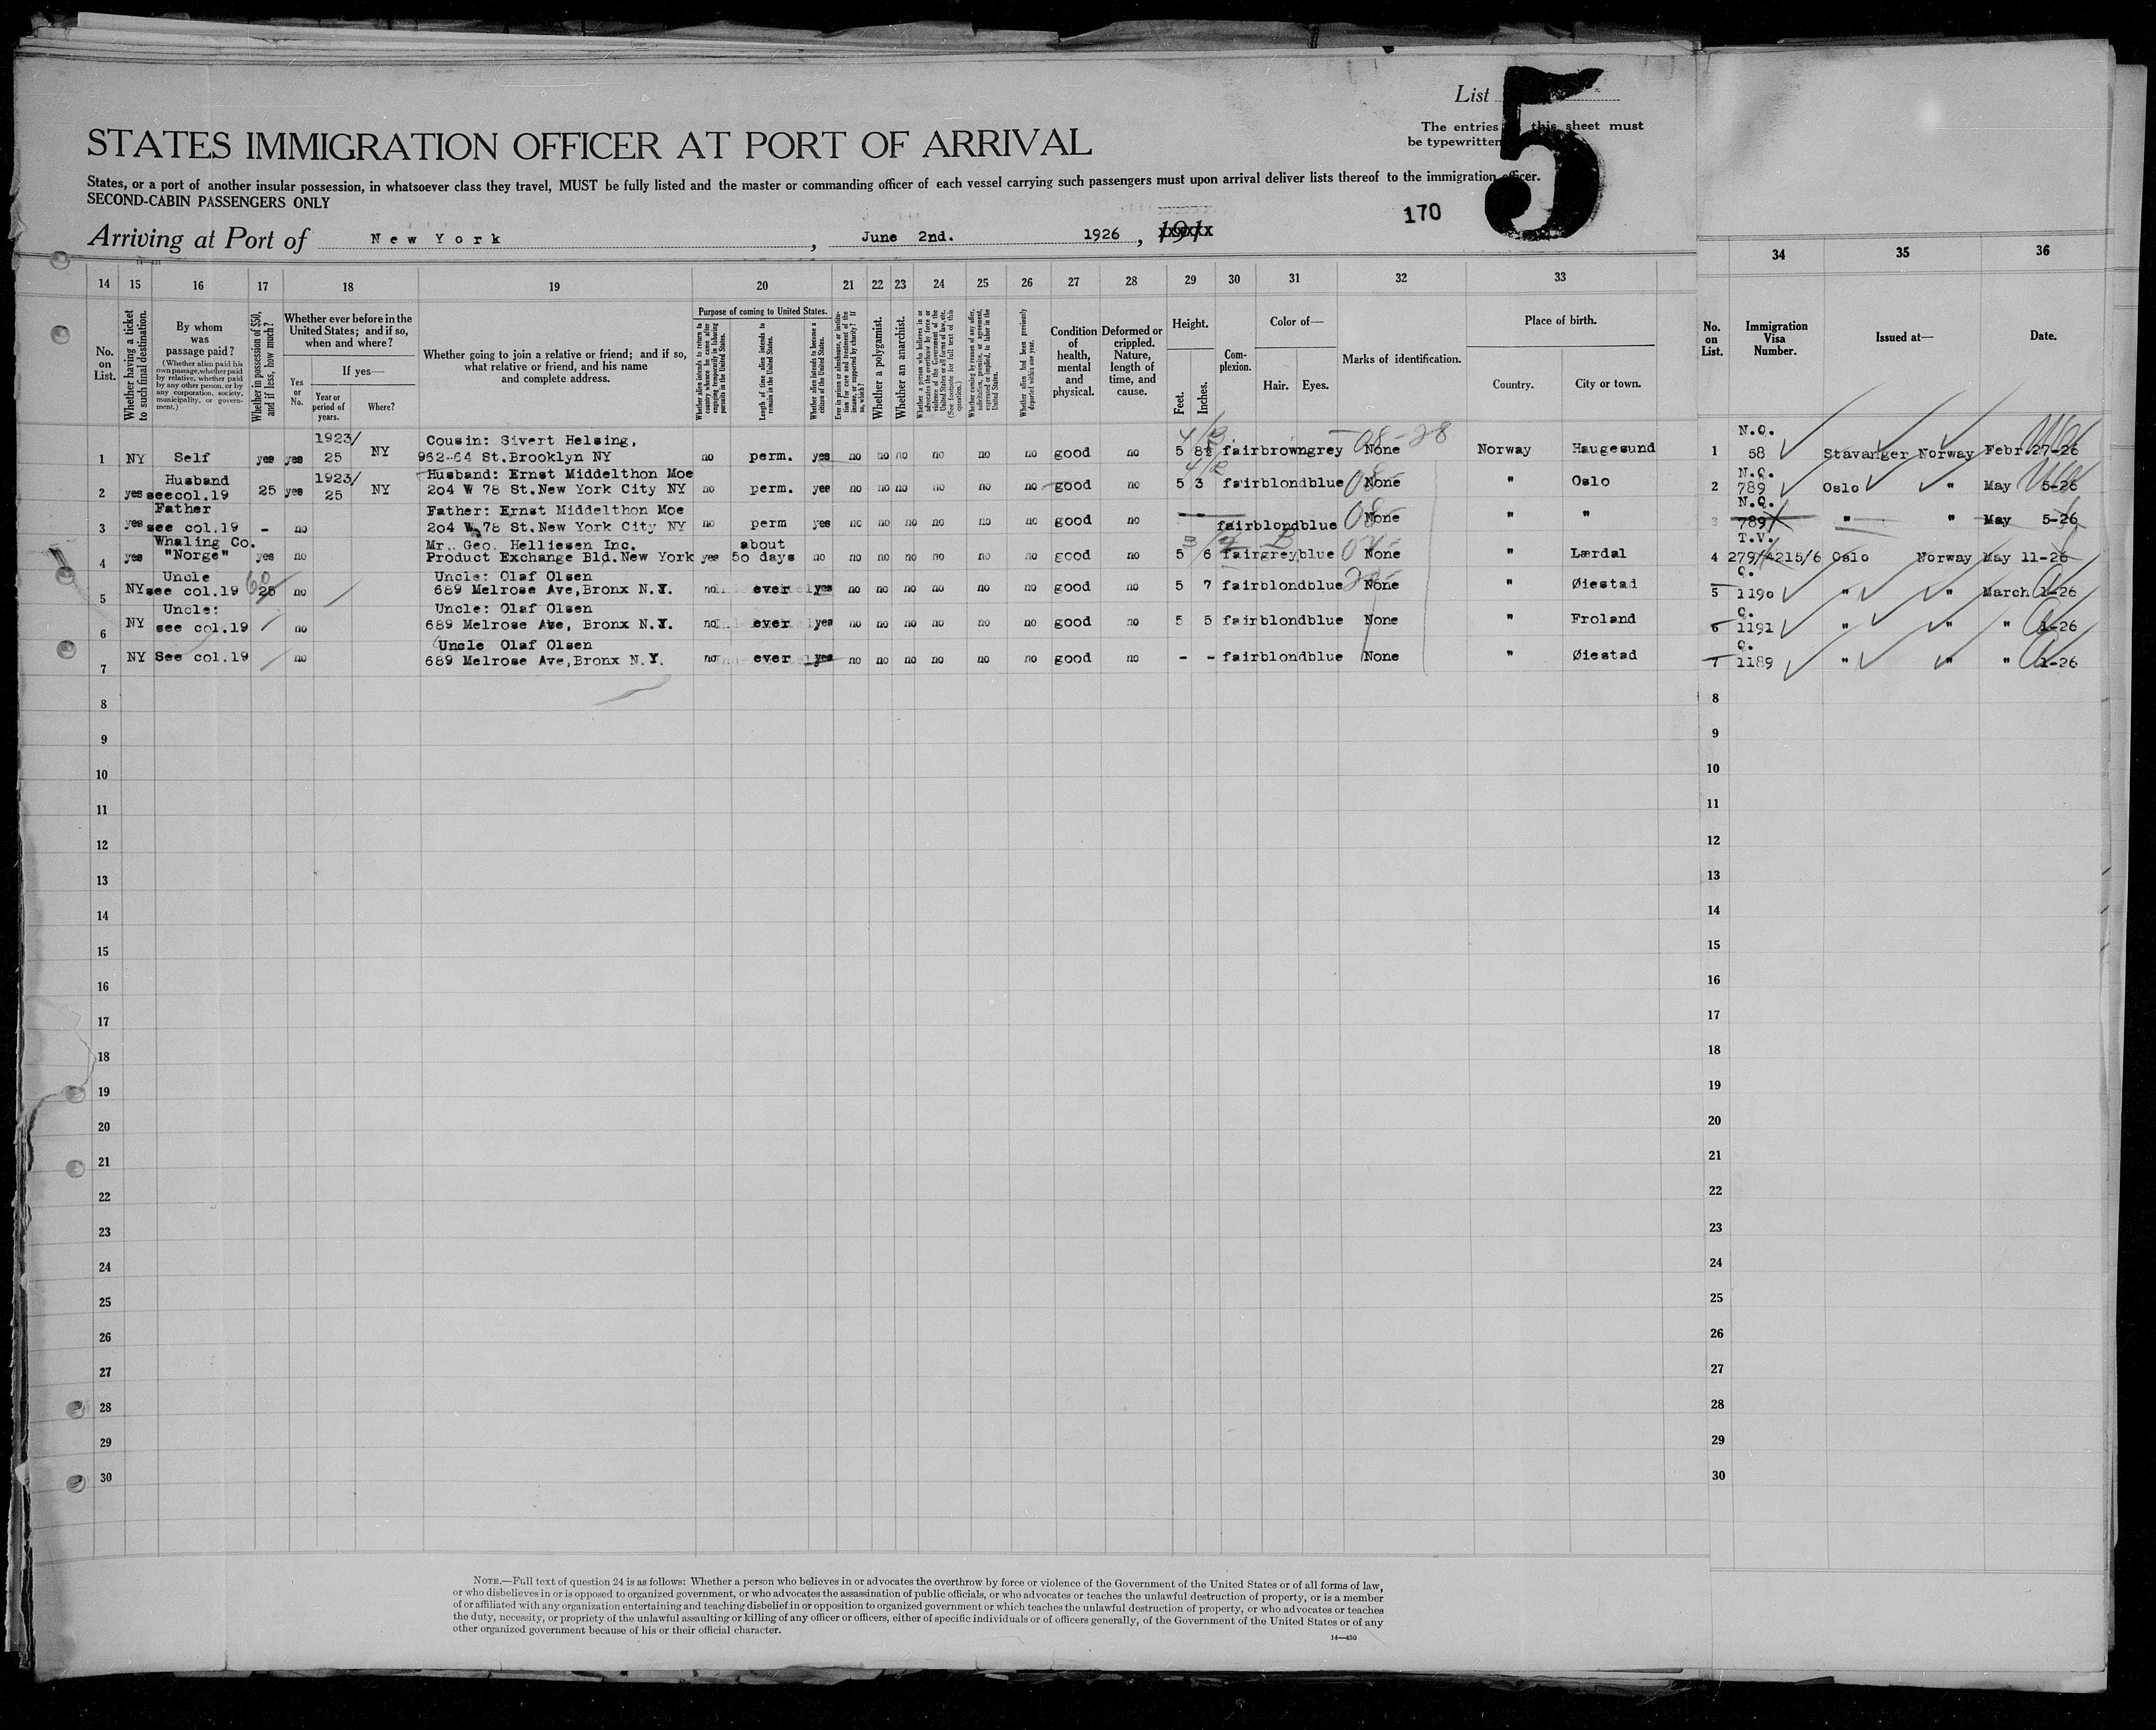 List 5
The entries this sheet must
be typewritten
STATES IMMIGRATION OFFICER AT PORT OF ARRIVAL
States, or a port of another insular possession, in whatsoever class they travel, MUST be fully listed and the master or commanding officer of each vessel carrying such passengers must upon arrival deliver lists thereof to the immigration officer.
SECOND-CABIN PASSENGERS ONLY
170
Arriving at Port of New York, June 2nd. 1926, 191
14 15 16 17 18 19 20 21 22 23 24 25 26 27 28 29 30 31 32 33 34 35 36
No. on List.
Whether having a ticket to such final destination.
By whom was passage paid?
(Whether alien paid his own passage, whether paid by relative, whether paid by any other person, or by any corporation, society, municipality, or government.)
Whether in possession of $50, and if less, how much?
Whether ever before in the United States; and if so, when and where?
Yes or No.
If yes—
Year or period of years.
Where?
Whether going to join a relative or friend; and if so, what relative or friend, and his name and complete address.
Purpose of coming to United States.
Whether alien intends to return to country whence he came after engaging temporarily in laboring pursuits in the United States.
Length of time alien intends to remain in the United States.
Whether alien intends to become a citizen of the United States.
Ever in prison or almshouse, or institution for care and treatment of the insane, or supported by charity? If so, which?
Whether a polygamist.
Whether an anarchist.
Whether a person who believes in or advocates the overthrow by force or violence of the Government of the United States or all forms of law, etc. (See footnote for full text of this question.)
Whether coming by reason of any offer, solicitation, promise, or agreement, expressed or implied, to labor in the United States.
Whether alien had been previously deported within one year.
Condition of health, mental and physical.
Deformed or crippled. Nature, length of time, and cause.
Height.
Feet.
Inches.
Complexion.
Color of—
Hair.
Eyes.
Marks of identification.
Place of birth.
Country.
City or town.
No. on List.
Immigration Visa Number.
Issued at—
Date.
1 NY Self yes yes 1923/25 NY Cousin: Sivert Helsing, 962-64 St.Brooklyn NY no perm. yes no no no no no no good no 5 8½ fair brown grey None Norway Haugesund 1 N.Q. 58 Stavanger Norway Febr.27-26
2 yes Husband see col.19 25 yes 1923/25 NY Husband: Ernst Middelthon Moe 204 W 78 St.New York City NY no perm. yes no no no no no no good no 5 3 fair blond blue None " Oslo 2 N.Q. 789 Oslo " May 5-26
3 yes Father see col.19 - no Father: Ernst Middelthon Moe 204 W 78 St.New York City NY no perm yes no no no no no no good no fair blond blue None " " 3 N.Q. 789 " " May 5-26
4 yes Whaling Co. "Norge" yes no Mr. Geo. Helliesen Inc. Product Exchange Bld.New York yes about 50 days no no no no no no no good no 5 6 fair grey blue None " Lærdal 4 T.V. 279/4215/6 Oslo Norway May 11-26
5 NY Uncle see col.19 25 no Uncle: Olaf Olsen 689 Melrose Ave,Bronx N.Y. no ever yes no no no no no no good no 5 7 fair blond blue None " Øiestad 5 Q. 1190 " " March 1-26
6 NY Uncle: see col.19 no Uncle: Olaf Olsen 689 Melrose Ave, Bronx N.Y. no ever yes no no no no no no good no 5 5 fair blond blue None " Froland 6 Q. 1191 " " " 1-26
7 NY See col.19 no Uncle Olaf Olsen 689 Melrose Ave,Bronx N.Y. no ever yes no no no no no no good no - - fair blond blue None " Øiestad 7 Q. 1189 " " " 1-26
8 8
9 9
10 10
11 11
12 12
13 13
14 14
15 15
16 16
17 17
18 18
19 19
20 20
21 21
22 22
23 23
24 24
25 25
26 26
27 27
28 28
29 29
30 30
NOTE.—Full text of question 24 is as follows: Whether a person who believes in or advocates the overthrow by force or violence of the Government of the United States or of all forms of law,
or who disbelieves in or is opposed to organized government, or who advocates the assassination of public officials, or who advocates or teaches the unlawful destruction of property, or is a member
of or affiliated with any organization entertaining and teaching disbelief in or opposition to organized government or which teaches the unlawful destruction of property, or who advocates or teaches
the duty, necessity, or propriety of the unlawful assaulting or killing of any officer or officers, either of specific individuals or of officers generally, of the Government of the United States or of any
other organized government because of his or their official character.
14—430